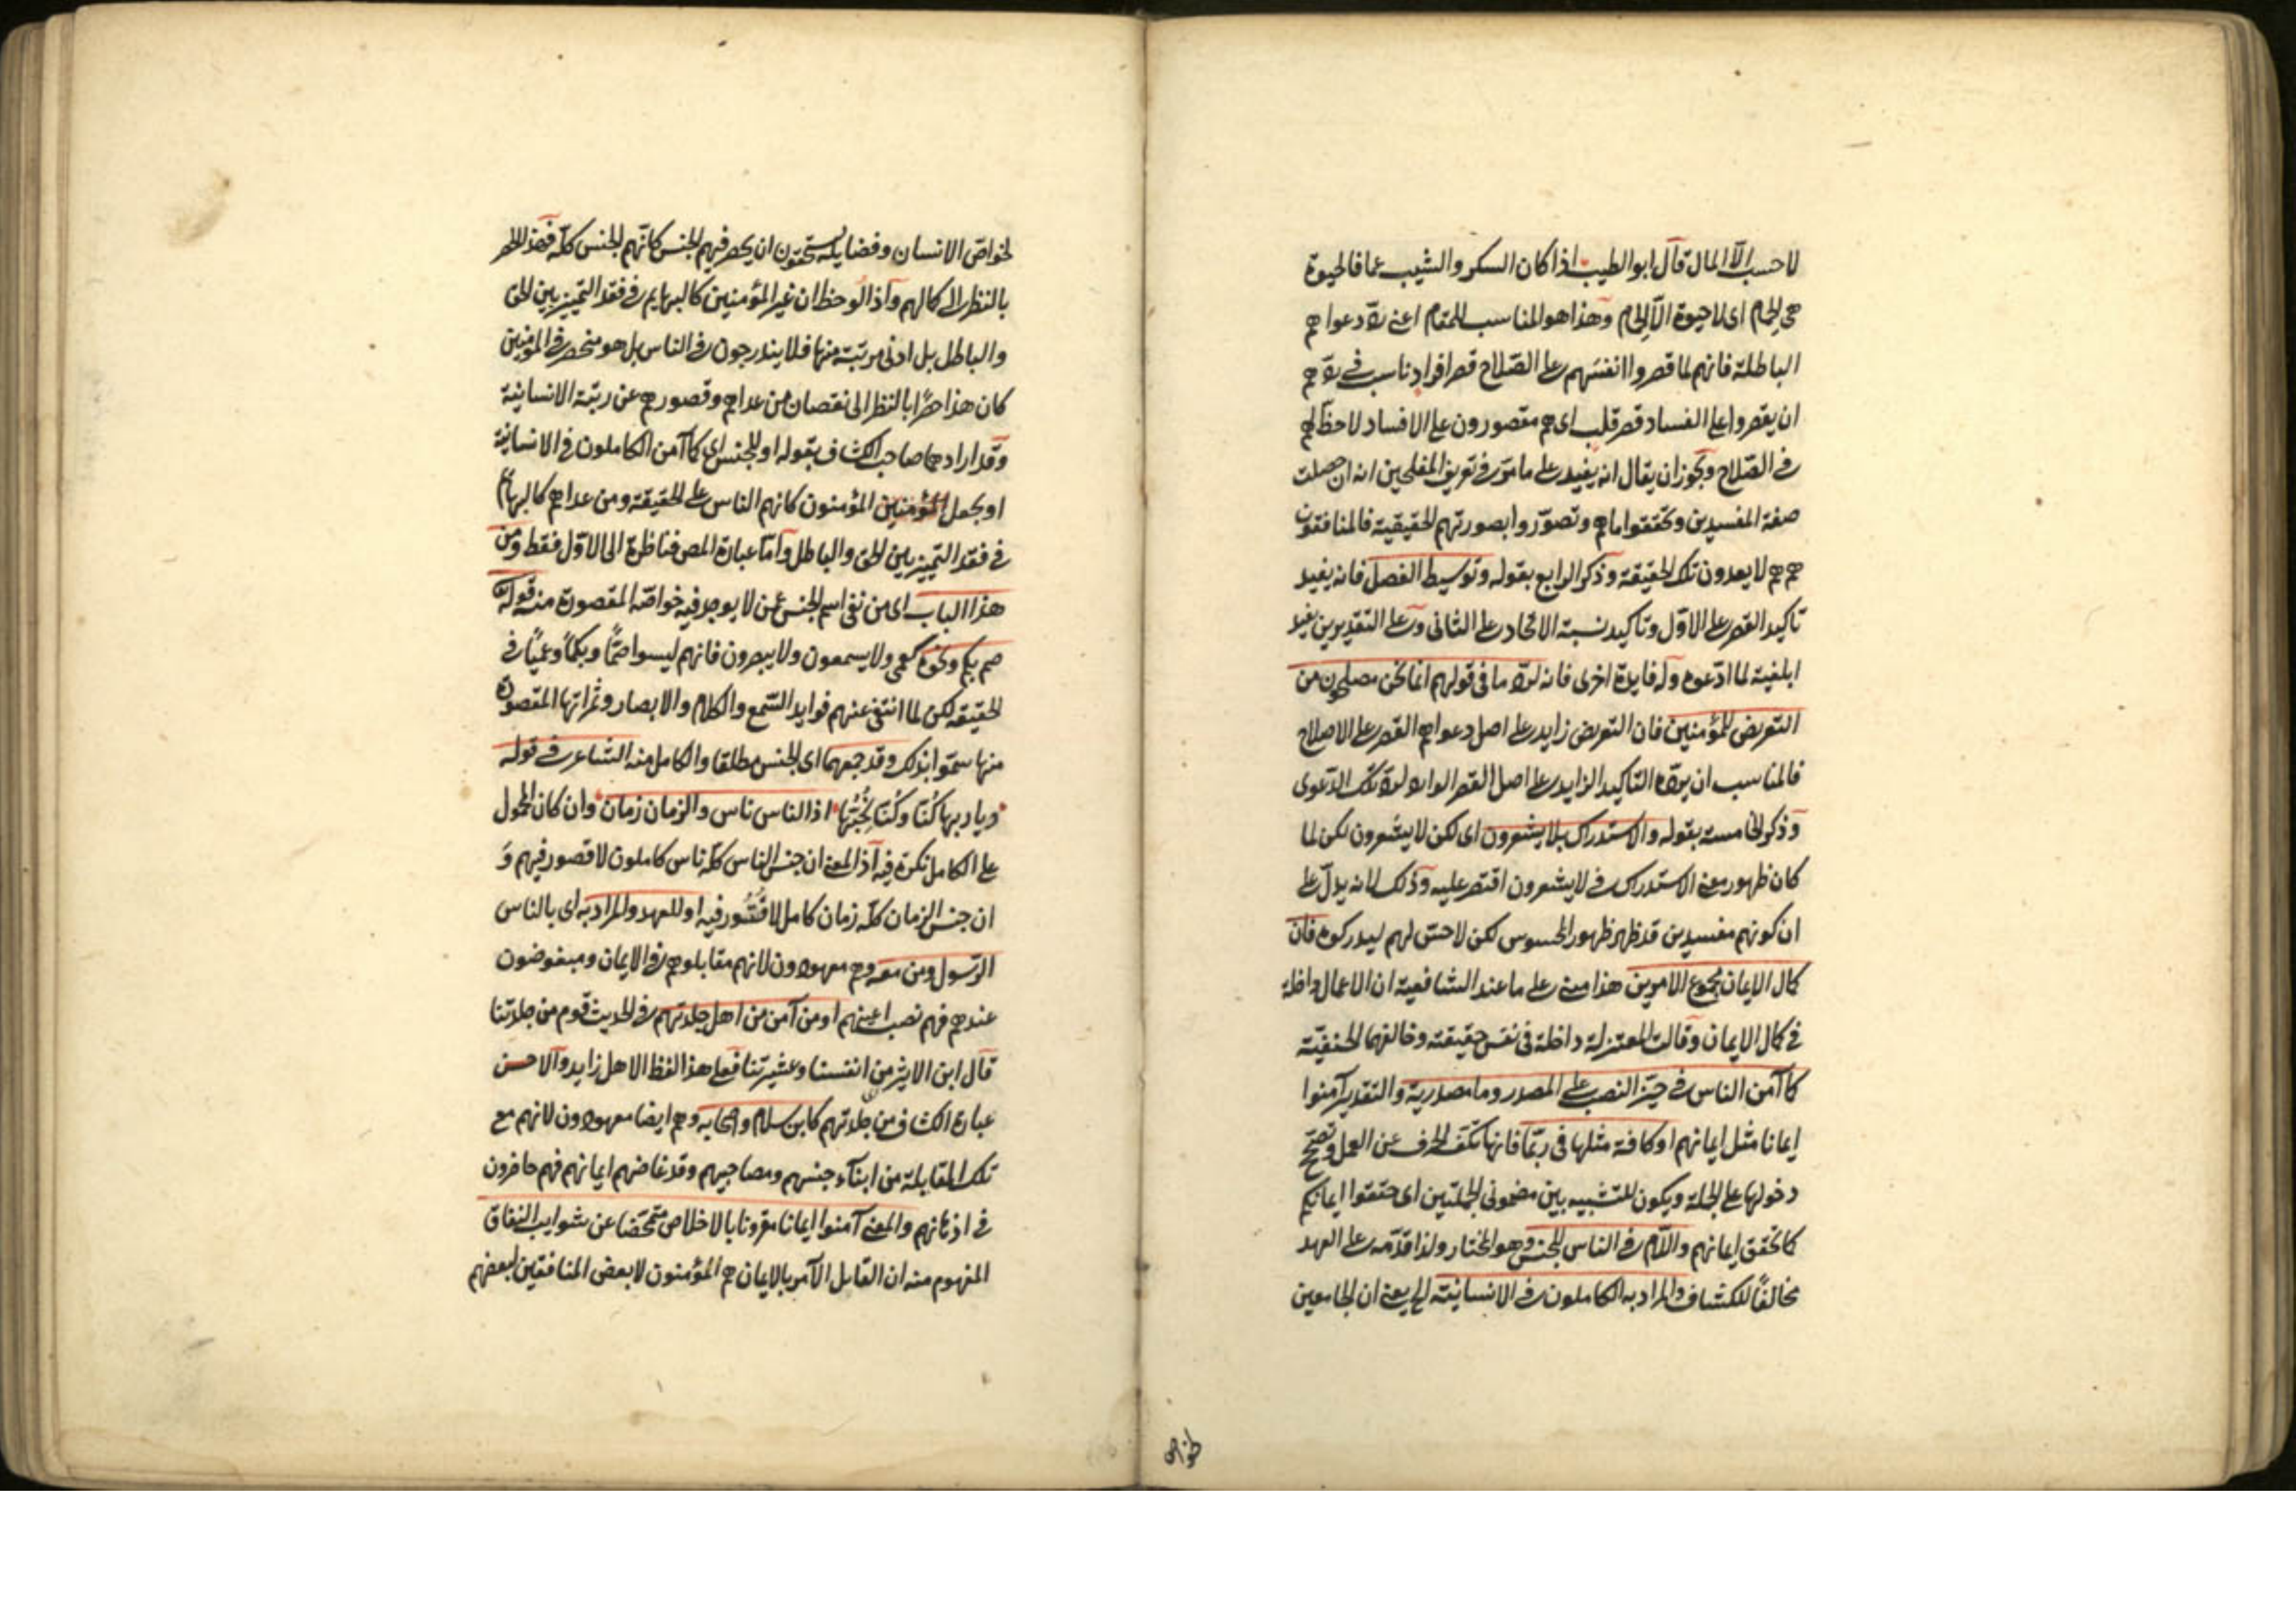 لا حسب الا المال قال ابو الطيب اذا كان السكر والشيب عما فالحيوة
هى الحمام اى لا حيوة الا الحمام وهذا هو المناسب للمقام اعنى رد دعواهم
الباطلة فانهم لما قصروا انفسهم على الصلاح قصر افراد ناسب فى ردهم
ان يقصروا على الفساد قصر قلب اى هم مقصورون على الافساد لا حظ لهم
فى الصلاح ويجوز ان يقال انه يفيد على ما مر فى تعريف المفلحين انه ان حصلت
صفة المفسدين وتحققوا ماهم وتصوروا بصورتهم الحقيقية فالمنافقون
هم هم لا يعدون تلك الحقيقة وذكر الرابع بقوله وتوسيط الفصل فانه يفيد
تاكيد القصر على الاول وتاكيد نسبة الاتحاد على الثانى وعلى التقديرين يفيد
ابلغية لما ادعوه وله فايدة اخرى فانه لرد ما فى قولهم انما نحن مصلحون من
التعريض للمؤمنين فان التعريض زايد على اصل دعواهم القصر على الاصلاح
فالمناسب ان يرده التاكيد الزايد على اصل القصر الوارد لرد تلك الدعوى
وذكر الخامسة بقوله والاستدراك بلا يشعرون اى لكن لا يشعرون لكن لما
كان ظهور معنى الاستدراك فى لا يشعرون اقتصر عليه وذلك لانه يدل على
ان كونهم مفسدين قد ظهر ظهور المحسوس لكن لا حس لهم ليدركوه فان
كمال الايمان بمجموع الامرين هذا مبنى على ما عند الشافعية ان الاعمال داخلة
فى كمال الايمان وقالت المعتزلة داخلة فى نفس حقيقته وخالفهما الحنفية
كما آمن الناس فى حيز النصب على المصدر وما مصدرية والتقدير آمنوا
ايمانا مثل ايمانهم او كافة مثلها فى ربما فانها تكف الحرف عن العمل وتصحح
دخولها على الجملة ويكون للتشبيه بين مضمونى الجملتين اى حققوا ايمانكم
كما تحقق ايمانهم واللام فى الناس للجنس وهو المختار ولذا قدمه على العهد
مخالفا للكشاف والمراد به الكاملون فى الانسانية الخ يعنى ان الجامعين
لخواص
لخواص الانسان وفضايله يستحقون ان يحصر فيهم الجنس كانهم الجنس كله فهذا الحصر
بالنظر الى كمالهم واذا لوحظ ان غير المؤمنين كالبهايم فى فقد التمييز بين الحق
والباطل بل ادنى مرتبة منها فلا يندرجون فى الناس بل هو منحصر فى المؤمنين
كان هذا حصرا بالنظر الى نقصان من عداهم وقصورهم عن رتبة الانسانية
وقد ارادهما صاحب الكشاف بقوله او للجنس اى كما آمن الكاملون فى الانسانية
او يجعل المؤمنين المؤمنون كانهم الناس على الحقيقة ومن عداهم كالبهائم
فى فقد التمييز بين الحق والباطل واما عبارة المص فناظرة الى الاول فقط ومن
هذا الباب اى من نفى اسم الجنس عمن لا يوجد فيه خواصه المقصودة منه قوله تع
صم بكم ونحوه كعمى ولا يسمعون ولا يبصرون فانهم ليسوا صما وبكما وعميا فى
الحقيقة لكن لما انتفى عنهم فوايد السمع والكلام والابصار وثمراتها المقصودة
منها سموا بذلك وقد جمعهما اى الجنس مطلقا والكامل منه الشاعر فى قوله
ديار بها كنا وكنا نحبها اذ الناس ناس والزمان زمان وان كان المحمول
على الكامل نكرة فيه اذ المعنى ان جنس الناس كله ناس كاملون لا قصور فيهم و
ان جنس الزمان كله زمان كامل لا قصور فيه او للعهد والمراد به اى بالناس
الرسول ومن معه وهم معهودون لانهم مقابلوهم فى الايمان ومبغوضون
عندهم فهم نصب اعينهم او من آمن من اهل جلدتهم فى الحديث قوم من جلدتنا
قال ابن الاثير من انفسنا وعشيرتنا فعلى هذا لفظ الاهل زايد والاحسن
عبارة الكشاف من جلدتهم كابن سلام واصحابه وهم ايضا معهودون لانهم مع
تلك المقابلة من ابناء جنسهم ومصاحبيهم وقد غاضهم ايمانهم فهم حاضرون
فى اذهانهم والمعنى آمنوا ايمانا مقرونا بالاخلاص متمحضا عن شوايب النفاق
المفهوم منه ان القايل الآمر بالايمان هم المؤمنون لا بعض المنافقين لبعضهم